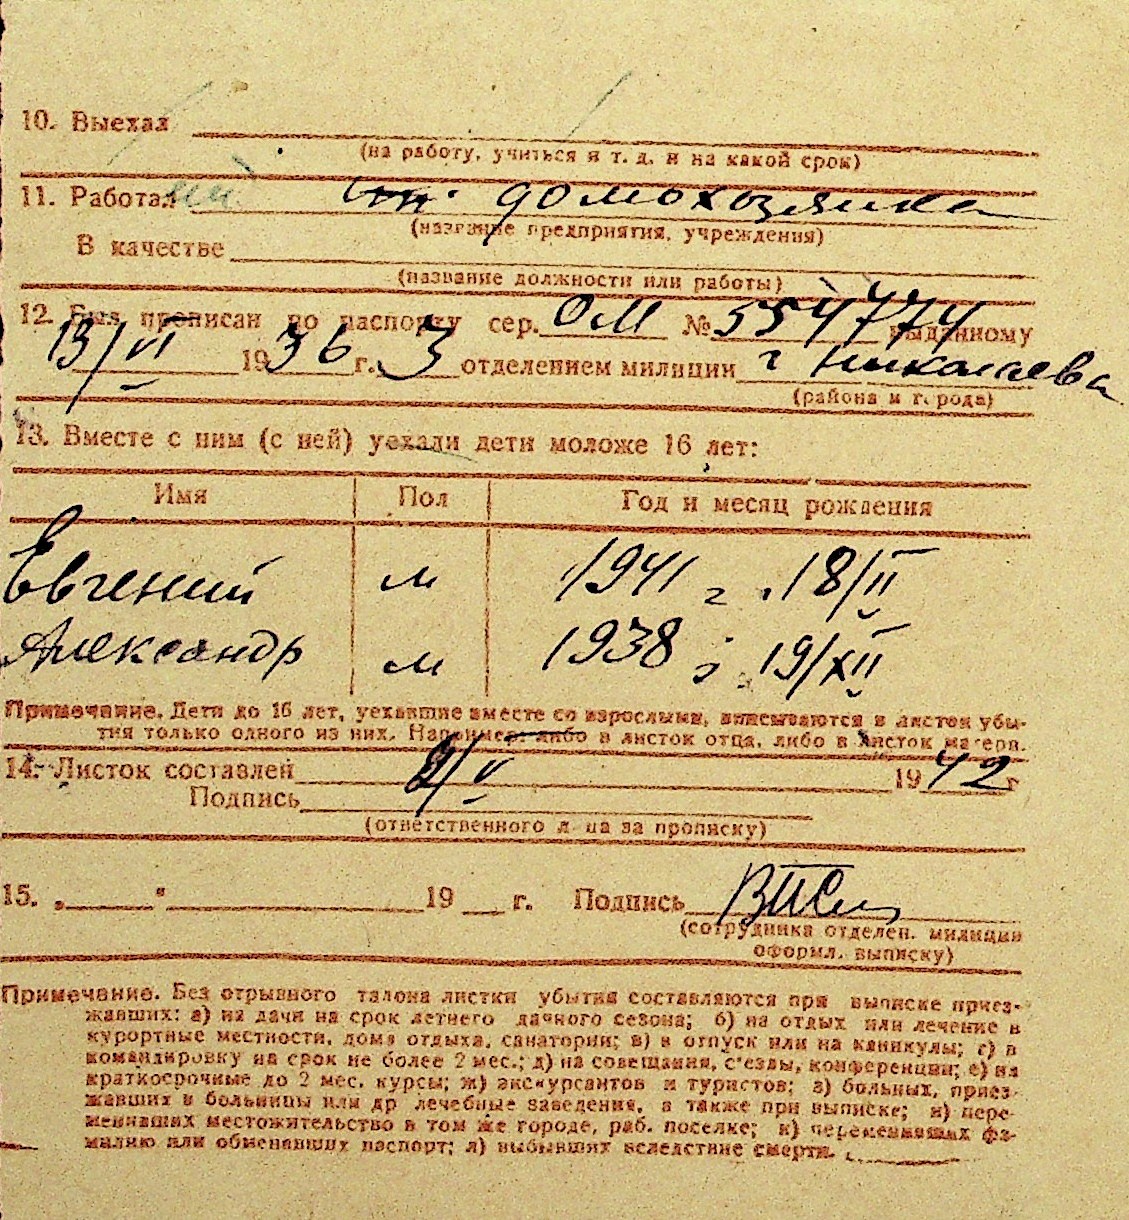 10. Выехал
(на работу, учиться и т. д. и на какой срок)
11. Работал домохозяйка
(название предприятия, учреждения)
В качестве
(название должности или работы)
12. Был прописан по паспорту сер. ОМ № 554774 выданному
13/VI 1936 г. 3 отделением милиции г Николаева
(района и города)
13. Вместе с ним (с ней) уехали дети моложе 16 лет:
Имя Пол Год и месяц рождения
Евгений м 1941 г. 18/II
Александр м 1938 г 19/XII
Примечание. Дети до 16 лет, уехавшие вместе со взрослыми, вписываются в листок убы-
тия только одного из них. Например: либо в листок отца, либо в листок матери.
14. Листок составлен /V 1942 г
Подпись
(ответственного лица за прописку)
15. „ " 19 г. Подпись
(сотрудника отделен. милиции
оформл. выписку)
Примечание. Без отрывного талона листки убытия составляются при выписке приез-
жавших: а) на дачи на срок летнего дачного сезона; б) на отдых или лечение в
курортные местности, дома отдыха, санатории; в) в отпуск или на каникулы; г) в
командировку на срок не более 2 мес.; д) на совещания, с'езды, конференции; е) на
краткосрочные до 2 мес. курсы; ж) экскурсантов и туристов; з) больных, приез-
жавших в больницы или др лечебные заведения, а также при выписке; и) пере-
менивших местожительство в том же городе, раб. поселке; к) переменивших фа-
милию или обменявших паспорт; л) выбывших вследствие смерти.